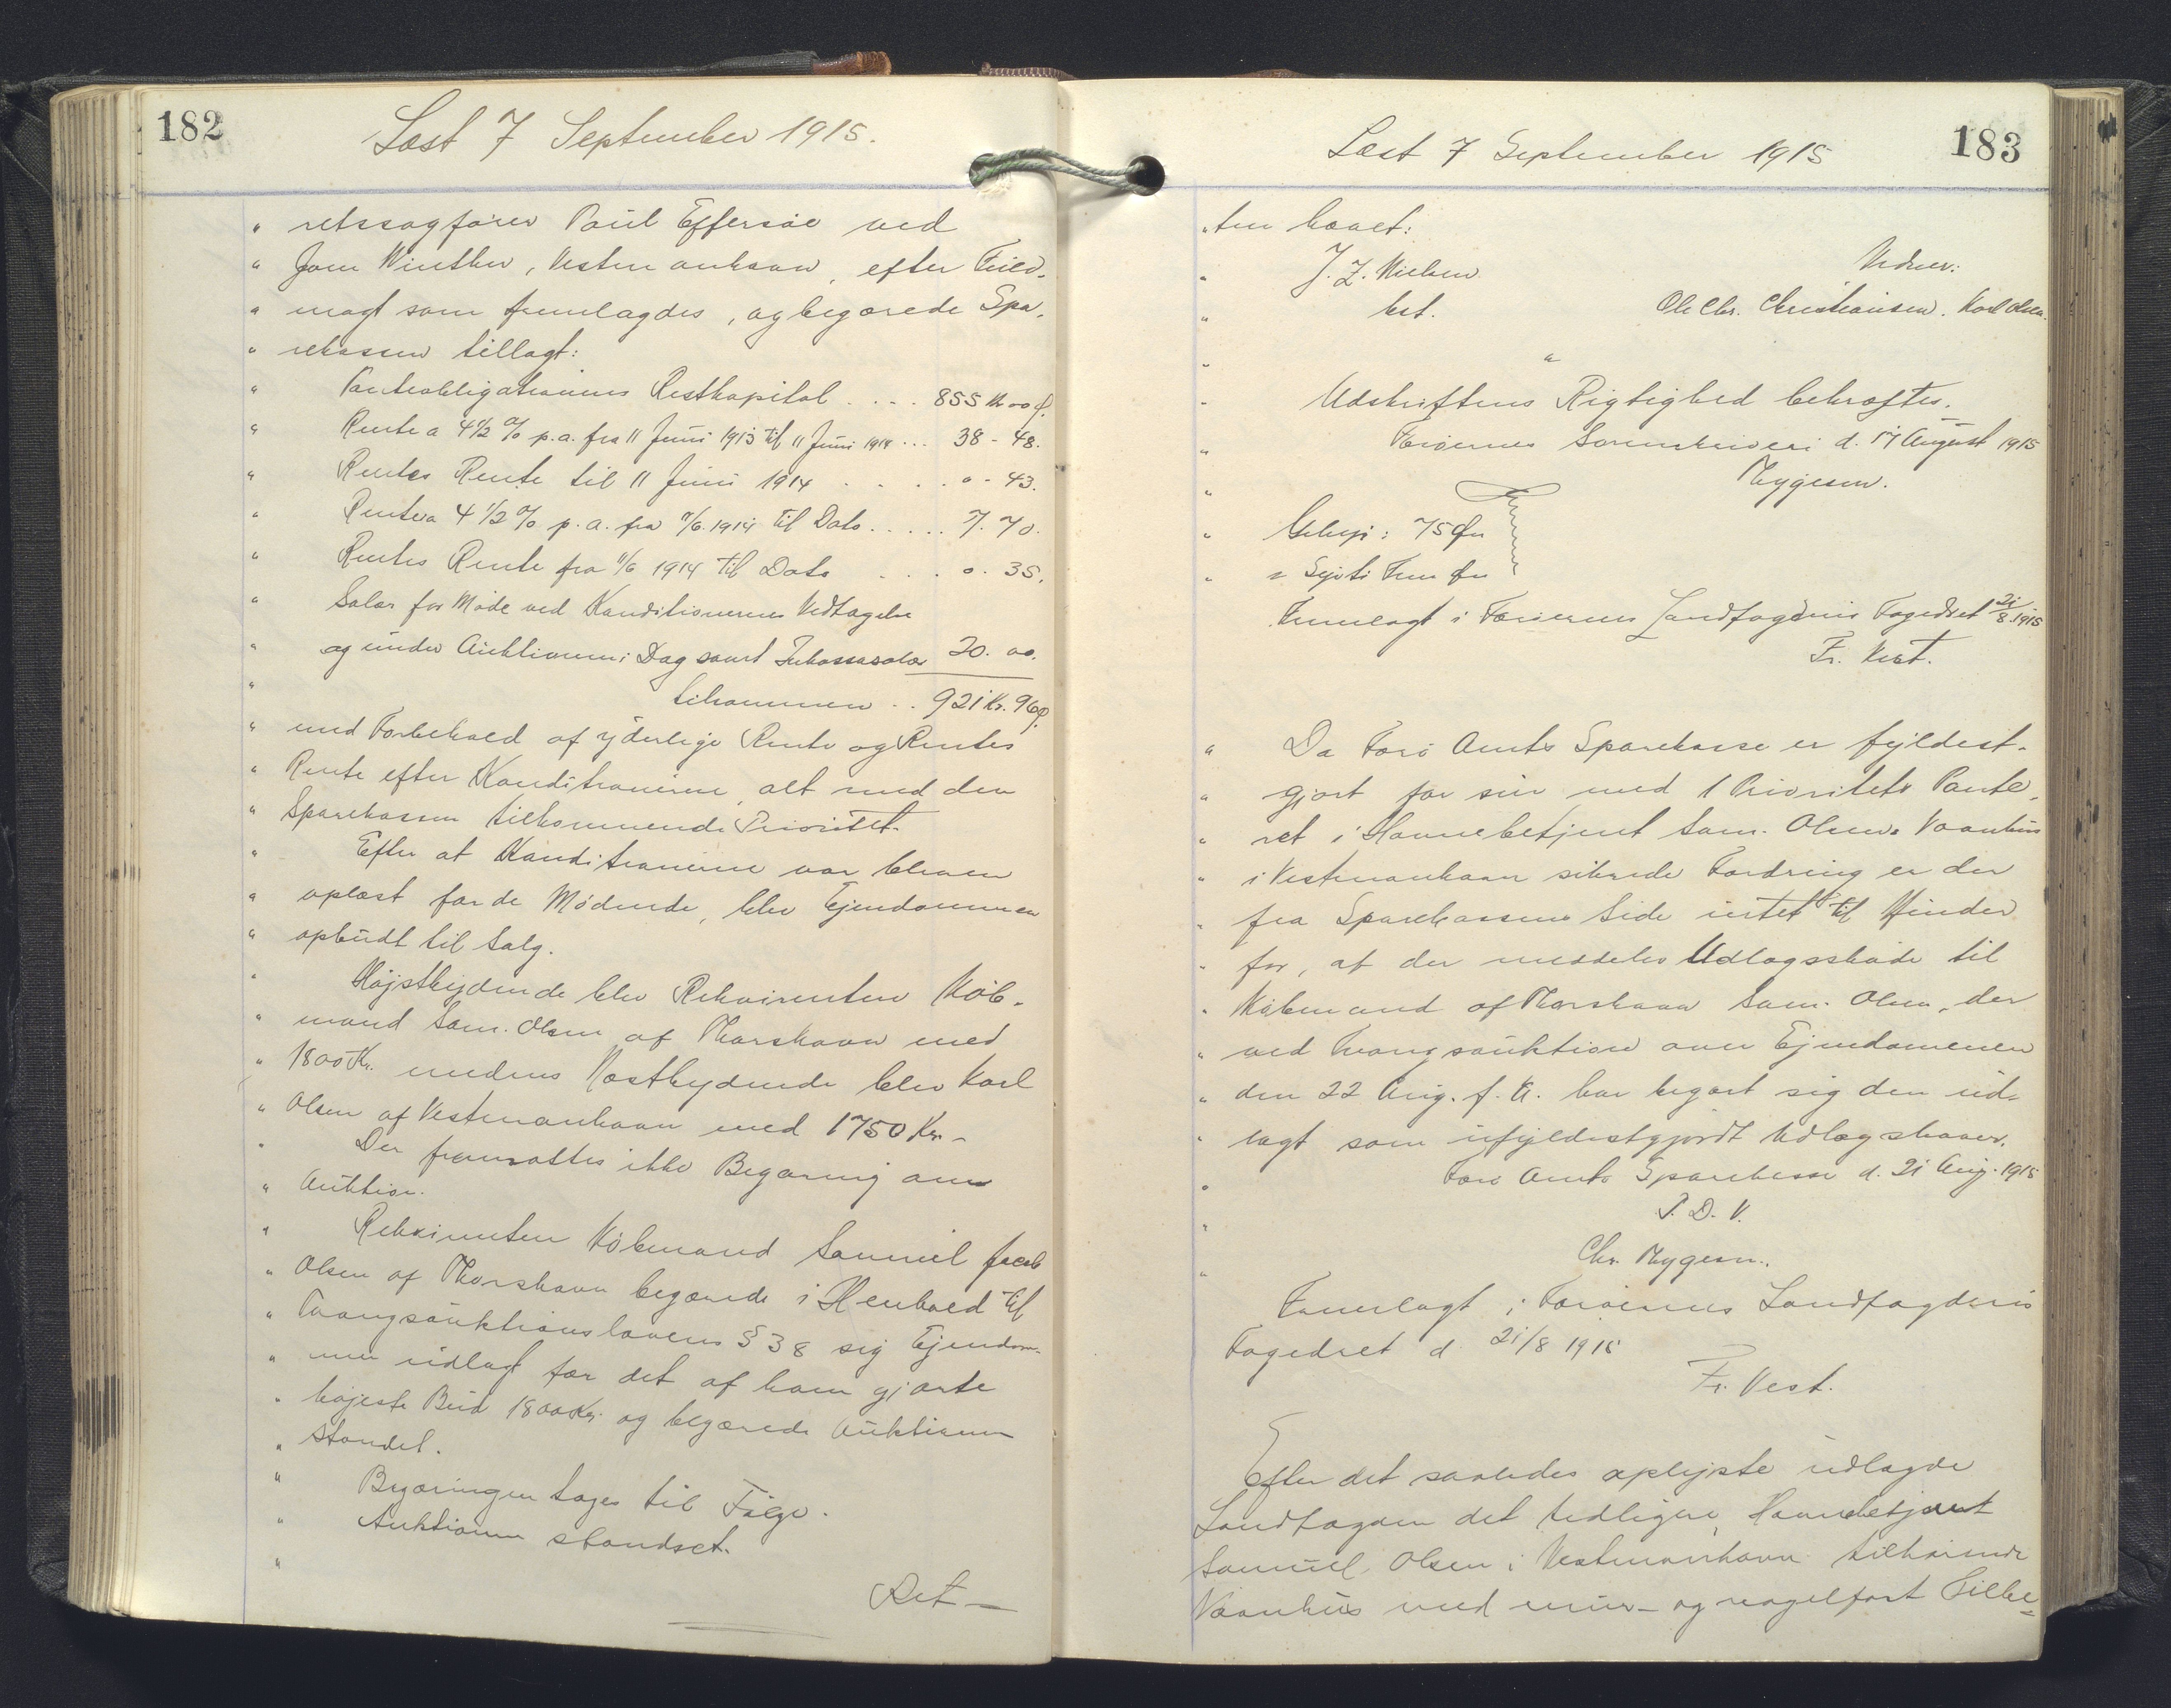 182
Læst 7 September 1915.
" retssagfører Poul Effersøe ved
" Joen Winther, Vestmanhavn, efter Fuld-
" magt som fremlagdes, og begærede Spa-
" rekassen tillagt:
" Panteobligationens Restkapital .... 855 Kr 00 Ø.
" Rente a 4½ % p.a. fra 11 Juni 1913 til 11 Juni 1914 ... 38 - 48.
" Rentes Rente til 11 Juni 1914 ..... 0 - 43.
" Rente a 4 1/2 % p.a. fra 11/6. 1914 til Dato ..... 7. 70.
" Rentes Rente fra 11/6 1914 til Dato .... 0. 35.
" Salær for Møde ved Konditionernes Vedtagelse
" og under Auktionen i Dag samt Inkassosalær 20. 00.
" tilsammen .. 921 Kr. 96 Ø.
" med Forbehold af yderlige Rente og Rentes
" Rente efter Konditionerne, alt med den
" Sparekassen tilkommende Prioritet.
" Efter at Konditionerne var bleven
" oplæst for de Mødende, blev Ejendommen
" opbudt til Salg.
" Højstbydende blev Rekvirenten Køb-
" mand Sam. Olsen af Thorshavn med
" 1800 Kr. medens Næstbydende blev Karl
" Olsen af Vestmanhavn med 1750 Kr. -
" Der fremsattes ikke Begæring om
" Auktion.
" Rekvirenten Købmand Samuel Jacob
" Olsen af Thorshavn begærede i Henhold til
" Tvangsauktionslovens § 38 sig Ejendom-
" men udlagt for det af ham gjorte
" højeste Bud 1800 Kr. og begærede Auktionen
" standset.
" Begæringen tages til Følge.
" Auktionen standset.
" Ret -
Læst 7 September 1915
183
" ten hævet:
" J. Z. Nielsen Vidner:
" kst. Ole Chr. Christiansen. Karl Olsen.
" "
" Udskriftens Rigtighed bekræftes.
" Færøernes Sorenskriveri d. 17 August 1915
" Thygesen.
" Gebyr: 75 Øre
" = Syvti Fem Øre
Fremlagt i Færøernes Landfogderis Fogedret 21/8. 1915
Fr. Vest.
" Da Færø Amts Sparekasse er fyldest-
" gjort for sin med 1 Prioritets Pante-
" ret i Havnebetjent Sam. Olsens Vaanhus
" i Vestmanhavn sikrede Fordring er der
" fra Sparekassens Side intet til Hinder
" for, at der meddeles Udlægsskøde til
" Købmand af Thorshavn Sam. Olsen, der
" ved Tvangsauktion over Ejendommen
" den 22 Aug. f. A. har begært sig den ud-
" lagt som ufyldestgjordt Udlægshaver.
" Færø Amts Sparekasse d. 21 Aug. 1915
" P. D. V.
" Chr. Thygesen.
Fremlagt i Færøernes Landfogderis
Fogedret d. 21/8 1915
Fr. Vest.
Efter det saaledes oplyste udlagde
Landfogden det tidligere, Havnebetjent
Samuel Olsen i Vestmanhavn tilhørende
Vaanhus med mur- og nagelfast Tilbe=